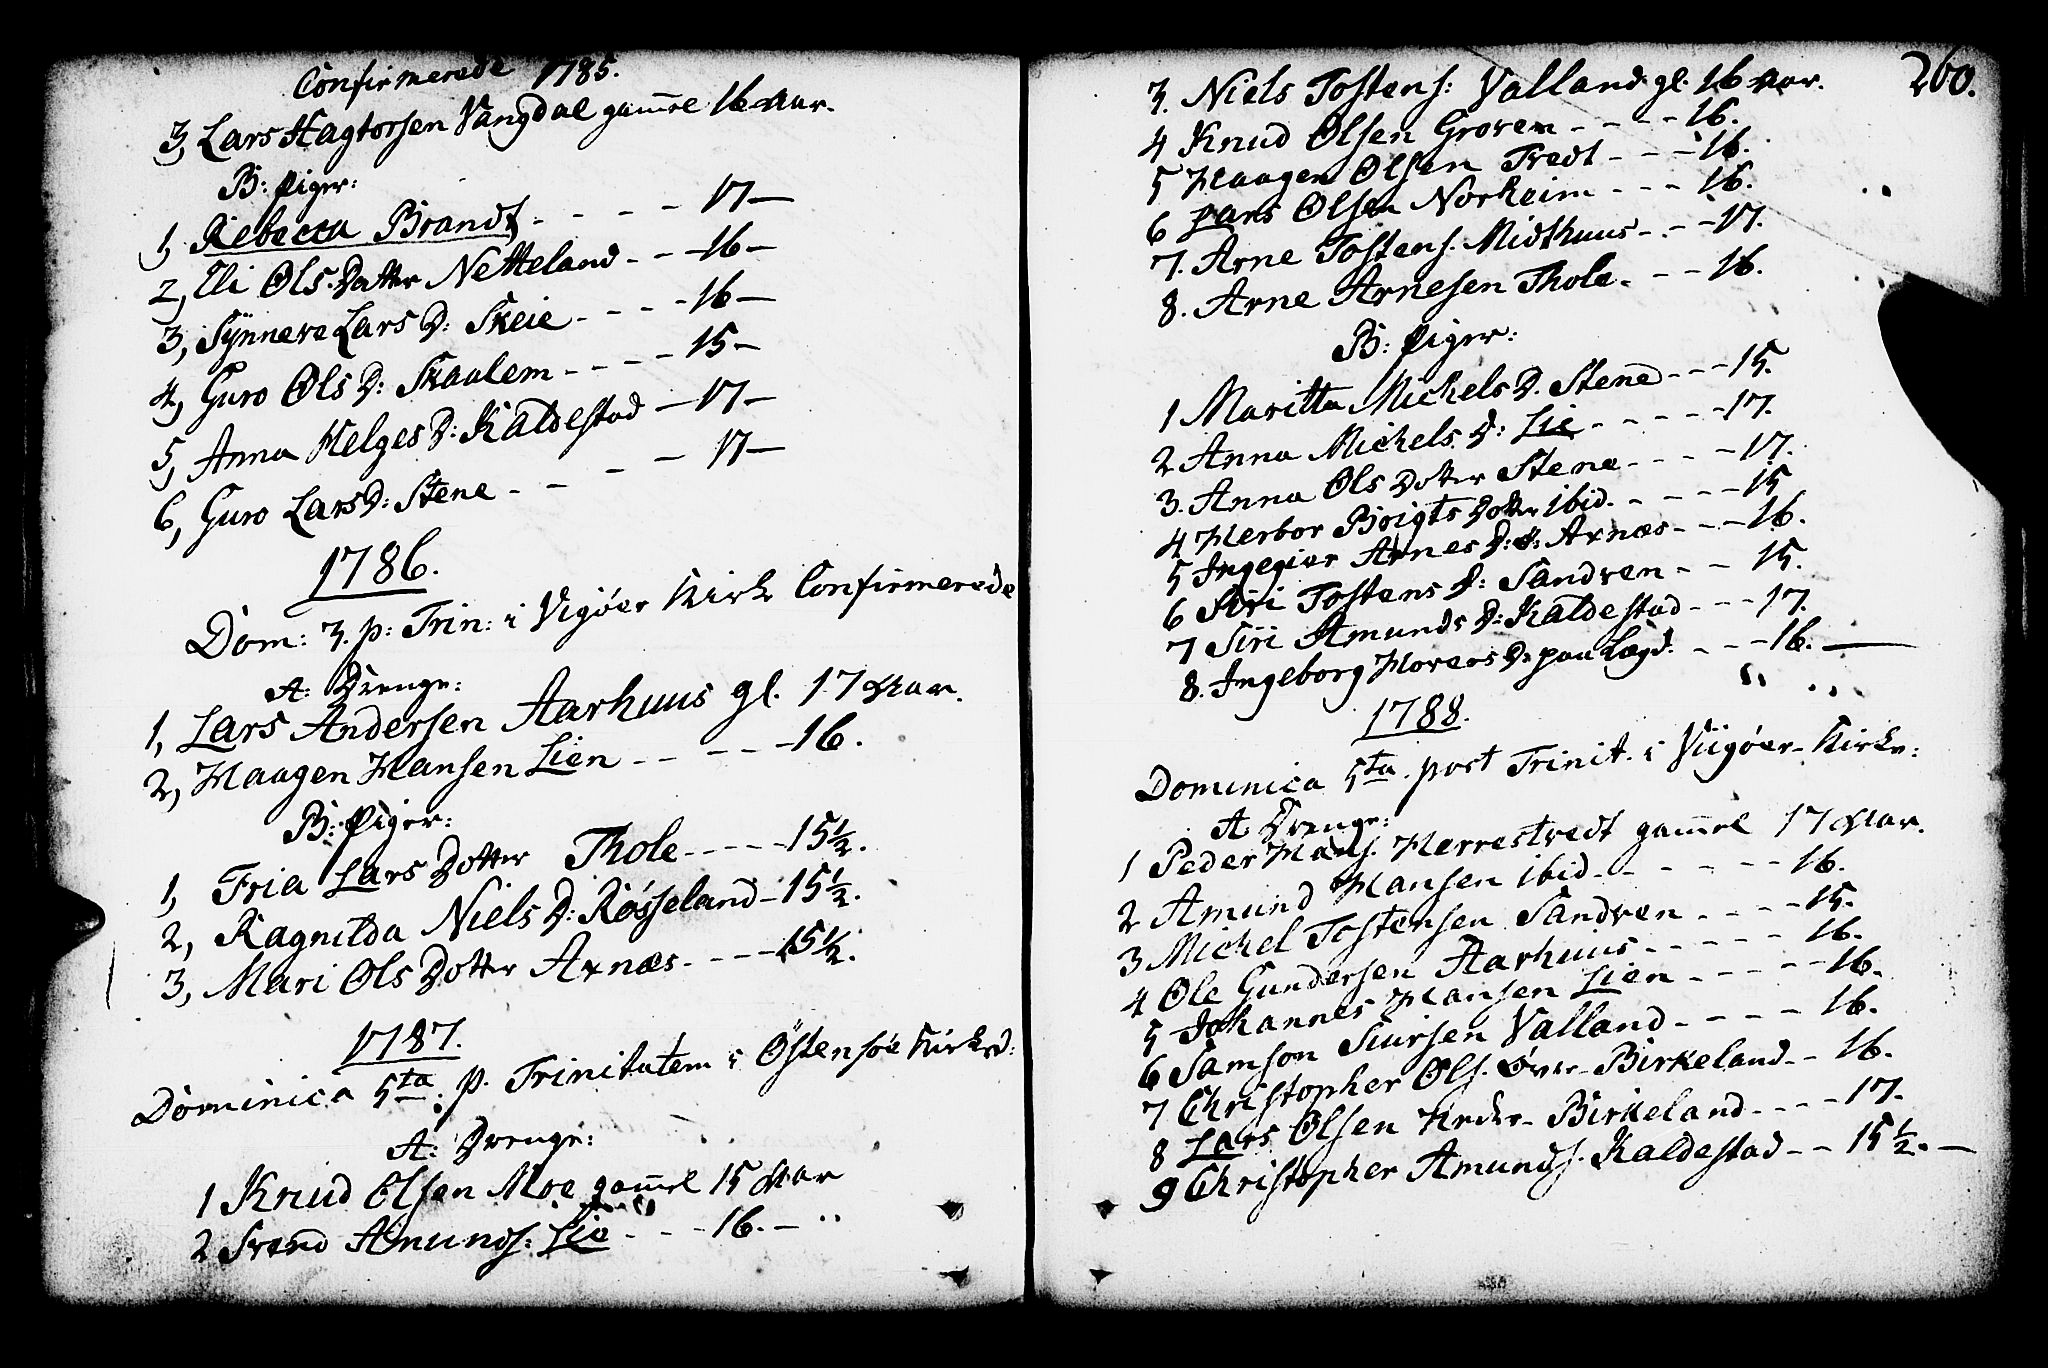 Confirmerede 1785.
3, Lars Hagtorsen Vangdal gam̄el 16 Aar.
B: Piger:
1, Rebecca Brandt - - - - 17 —
2, Eli Ols Datter Netteland - - 16 —
3, Synneve Lars D: Skeie - - - 16 —
4, Guro Ols D: Skaalem - - - - 15 —
5, Anna Helges D: Kaldestad — 17 —
6, Guro Lars D: Stene - - - - 17 —
1786.
Dom: 3. p: Trin: i Vigøer Kirke Confirmerede
A: Drenge:
1, Lars Andersen Aarhuus gl. 17 Aar.
2, Haagen Hansen Lien - - - - - 16.
B: Piger:
1, Fria Lars Dotter Thole - - - - - 15½.
2, Ragnilda Niels D: Røsseland - 15½.
3, Mari Ols Dotter Axnæs - - - - 15½.
1787.
Dominica 5ta. p. Trinitatem i Østensøe Kirke:
A: Drenge:
1 Knud Olsen Moe gam̄el 15 Aar
2 Svend Amunds: Lie - - - 16. —
260.
3. Niels Tostens: Valland gl. 16 Aar.
4 Knud Olsen Groven - - - - 16.
5 Haagen Olsen Tvedt - - - 16.
6 Lars Olsen Norheim - - - 16.
7. Arne Tostens. Midthuus - - - 17.
8. Arne Arnesen Thole. - - - 16.
B: Piger:
1 Maritta Michels D. Stene - - - 15.
2 Anna Michels D: Lie - - - - - 17.
3. Anna Ols Dotter Stene - - - - 17.
4 Herbor Broigts Dotter ibid. - - - - 15
5 Ingegier Arnes D: Axnæs - - - 16.
6 Siri Tostens D: Sandven - - 15.
7 Siri Amunds D: Kaldestad - - - 17.
8. Ingeborg Hovers D: paa Lægd. - - - 16. —
1788.
Dominica 5ta. post Trinit. i Viigøer Kirke:
A Drenge:
1 Peder Hans. Herrestvedt gam̄el 17 Aar.
2 Amund Hansen ibid - - - - - - 16.
3 Michel Tostensen Sandven - - - - 15.
4 Ole Gundersen Aarhuus - - - - - 16.
5 Johannes Hansen Lien - - - - - 16.
6 Samson Siursen Valland - - - - 16.
7 Christopher Ols. Øvre-Birkeland - - 16.
8 Lars Olsen Nedre-Birkeland - - - - 17.
9 Christopher Amunds. Kaldestad - - 15½. —